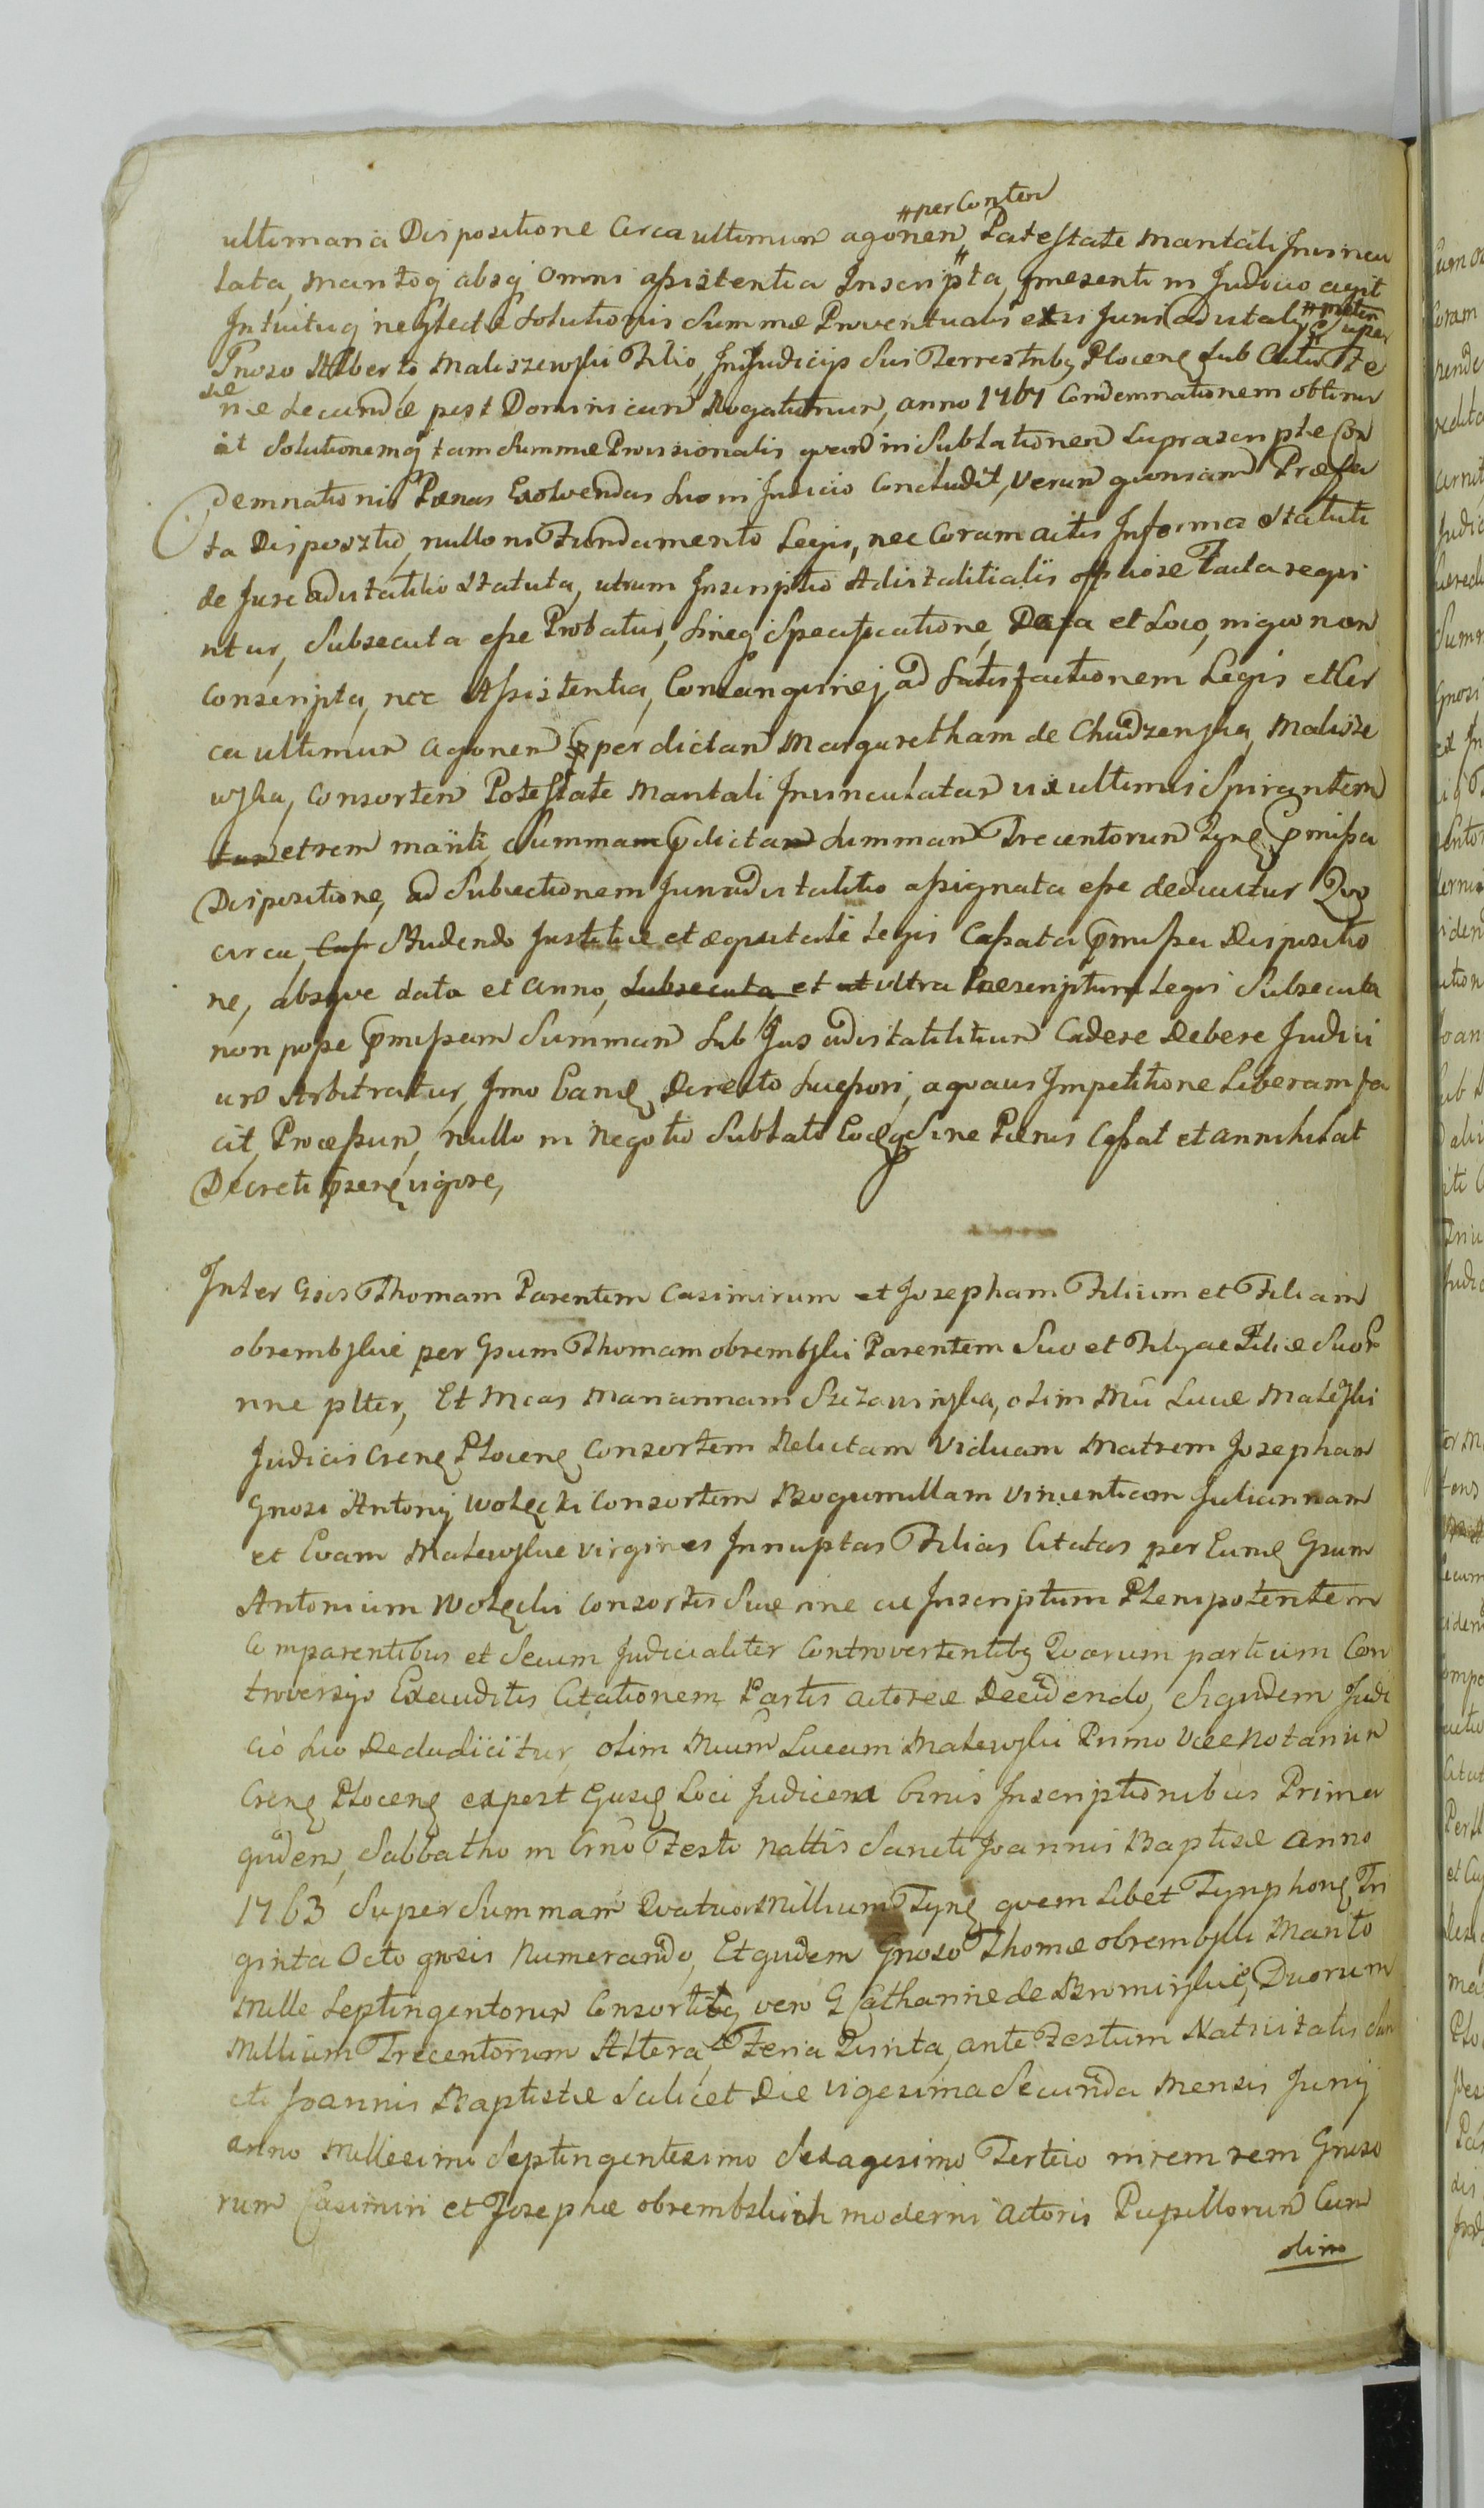 #per Conten
ultimaria Dispositione Circa ultimum agonen, Potestate Maritali Invincu
lata, Maritoq absq omni assistentia Inscripta, pmesenti in Judicio agit
Intuituq neglectæ Solutionis Summæ Proventualis exis Juris advitalj
Gnoso Alberto Maliszewski Filio, In Judicijs Suis Terrestribq Plocenę sub Cadentia Te
næ Secundæ post Dominicam Rogationum, anno 1767 Condemnationem obtinu
it Solutionemq tam Summæ Provisionalis quam in Sublationem Suprascriptæ Con
demnationis Pænas Exolvendas Suo in Judicio Concludit, Verum quoniam Præfa
ta Dispositio nullo in Fundamento Legis, nec Coram actis In forma Statuti
de Jure advitalitio Statuta, utrum Inscriptio Advitalitialis officiose Facta requi
ritur, Subsecuta esse Probatur, Sineq Specificatione, Data et Loco, in quo non
Conscripta, nec Assistentia, Consanguinej ad Satisfactionem Legis et Cir
ca ultimum agonem per dictam Margaretham de Chudzenska, Malisze
wska, Consortem Potestate Maritali Invinculatam vix ultimis Spirantem
et rem mariti, Summam pdictam Summam Trecentorum Tynę pmissa
Dispositione, ad Subiectionem Juri advitalitio assignata esse deducitur Quo
circa, Cass Studendo Justitiæ et æquitate Legis Cassata pmissa Dispositio
ne, absque data et anno, Subsecuta et ut ultra Præscriptum Legis Subsecuta
non posse pmissam Summam Sub Jus advitalitium Cadere Debere Judici
um Arbitratur, Imo Eandę Directo Successori, a quavis Impetitione Liberam fa
cit, Processum, nullo in Negotio Sublato Eoq Sine Pænis Cassat et annihilat
Decreti pserę vigore,
Inter Gsos Thomam Parentem Casimirum et Josepham Filium et Filiam
obrembskie per Gsum Thomam obrembski Parentem Suo et Filij ac Filiæ Suor
nne plter, Et Mcas Mariannam Szczawinska, olim Mci Lucæ Malewski
Judicis Crenę Plocenę Consortem Relictam Viduam Matrem Josepham
Gnosi Antonij Wolęcki Consortem Bogumillam Vincentiam Juliannam
et Evam Malewskie virgines Innuptas Filias Citatas per Eunę Gsum
Antonium Wolęcki Consortis Suæ nne ac Inscriptum Plenipotentem
Comparentibus et Secum Judicialiter Controvertentibq Quorum partium Con
troversijs Exauditis Citationem Partis actoreæ Decidendo, Siquidem Judi
cio Suo Deducitur, olim Mcum Lucam Malewski Primo Vice Notarium
Crenę Plocenę expost Ejusdę Loci Judicem binis Inscriptionibus Prima
quidem, Sabbatho in Crno Festo Nattis Sancti Joannis Baptistæ anno
1763 Super Summam Quatuor Millium Tynę quem Libet Tynphonę Tri
ginta Octo gnosis Numerando, Et quidem Gnoso Thomæ obrembski Marito
Mille Septingentorum Consorti vero G Catharinæ de Bromirskie, Duorum
Millium Trecentorum Altera, Feria Quinta, ante Festum Natiuitatis San
cti Joannis Baptistæ Scilicet Die vigesima Secunda Mensis Junij
anno Millesimo Septingentesimo Sexagesimo Tertio in rem rem Gnoso
rum Casimiri et Josephæ obrembskich moderni actoris Pupillorum Cum
olim